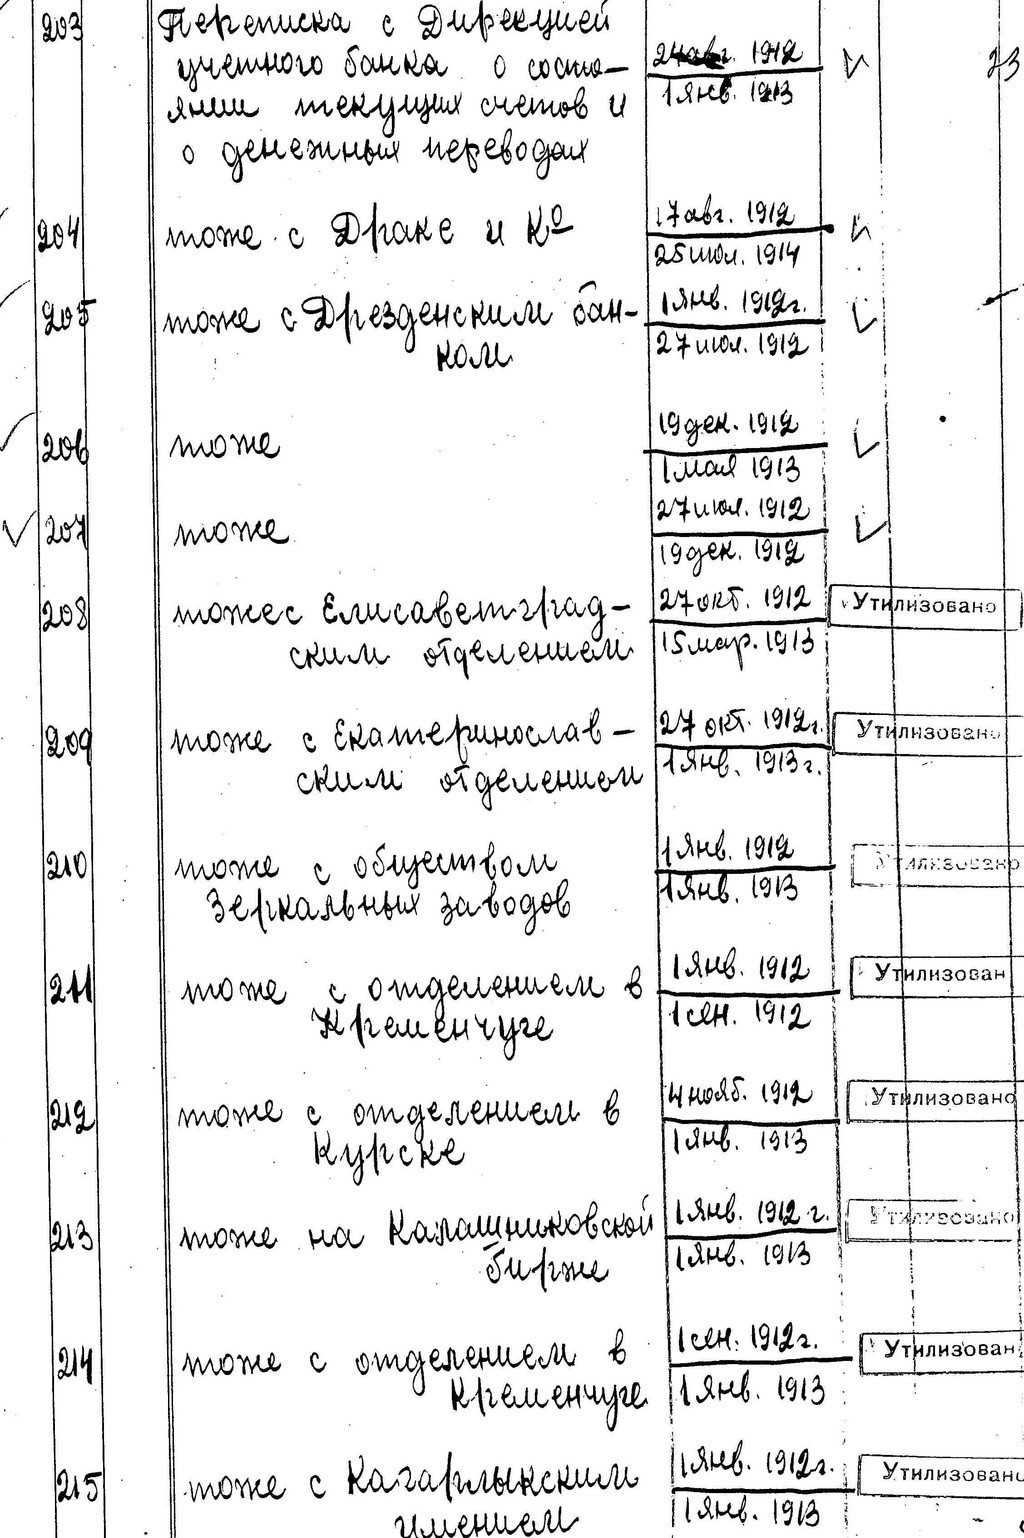 203 Переписка с Дирекцией
учетного банка о состо- 24 авг. 1912 23
янии текущих счетов и 1 янв. 1913
о денежных переводах
204 тоже с Драке и К⁰ 17 авг. 1912
25 июл. 1914
205 тоже с Дрезденским бан- 1 янв. 1912г.
ком 27 июл. 1912
206 тоже 19 дек. 1912
1 мая 1913
207 тоже 27 июл. 1912
19 дек. 1912
208 тоже с Елисаветград- 27 окт. 1912 Утилизовано
ским отделением 15 мар. 1913
209 тоже с Екатеринослав- 27 окт. 1912г. Утилизовано
ским отделением 1 янв. 1913г.
210 тоже с обществом 1 янв. 1912 Утилизовано
Зеркальных заводов 1 янв. 1913
211 тоже с отделением в 1 янв. 1912 Утилизован
Кременчуге 1 сен. 1912
212 тоже с отделением в 4 нояб. 1912 Утилизовано
Курске 1 янв. 1913
213 тоже на Калашниковской 1 янв. 1912 г. Утилизовано
бирже 1 янв. 1913
214 тоже с отделением в 1 сен. 1912г. Утилизован
Кременчуге 1 янв. 1913
215 тоже с Кагарлыкским 1 янв. 1912г. Утилизовано
имением 1 янв. 1913